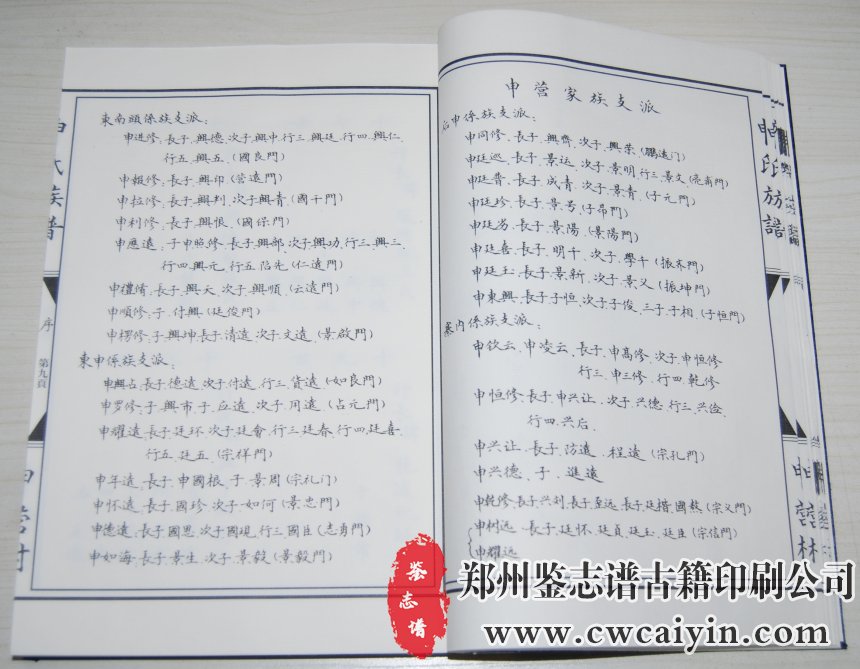 東南頭係族支派:
申進修:長子.興德.次子.興申.行三.興廷.行四.興仁.
行五.興五.(國良門)
申報修:長子.興印(营遠門)
申拉修:長子.興判.次子興青(國干門)
申利修:長子.興恨.(國保門)
申應遠:子申照修.長子興部.次子興功.行三.興三.
行四.興元.行五.占先(仁遠門)
申禮脩:長子.興天.次子.興順(云遠門)
申順修:子.付興(廷俊門)
申楞修:子.興坤長子.清遠.次子.文遠.(景啟門)
東申係族支派:
申興占:長子.德遠.次子付遠.行三.貨遠(如良門)
申罗修:子.興市.子.应遠.次子.用遠.(占元門)
申耀遠:長子.廷环.次子.廷會.行三.廷春.行四.廷喜.
行五.廷五.(宗祥門)
申年遠:長子申國根.子.景周(宗礼门)
申怀遠:長子.國珍.次子.如何(景忠門)
申德遠:長子.國恩.次子國現.行三國臣(志勇門)
申如海:長子.景生.次子.景毅(景毅門)
序
第九頁
申营家族支派
后申係族支派:
申同修.長子.興齊.次子.興荣.(鵬遠门)
申廷巡.長子.景运.次子.景明.行三.景文(亮甫門)
申廷普.長子.成青.次子.景青.(子元門)
申廷珍.長子.景号(子昂門)
申廷芳.長子.景陽.(景陽門)
申廷喜.長子.明干.次子.學干(振木門)
申廷玉.長子.景新.次子.景义(振坤門)
申東興.長子子恒.次子子俊.三子.子相(子恒門)
寨内係族支派:
申钦云.申凌云.長子.申高修.次子.申恒修
行三.申三修.行四.乾修
申恒修.長子.申兴让.次子.兴德.行三.兴俭.
行四.兴后.
申兴让.長子.防遠.程遠.(宗孔門)
申兴德.子.進遠
申乾修.長子.兴刘.長子.至远.長子.廷楷.國蔡(宗义門)
申树远.長子.廷怀.廷貞.廷玉.廷臣(宗信門)
申耀远
申氏族譜
鉴志谱
郑州鉴志谱古籍印刷公司
www.cwcaiyin.com